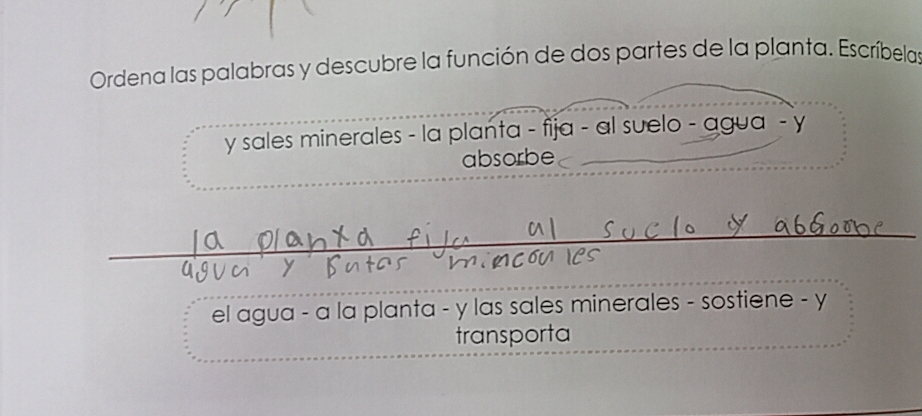 Ordena las palabras y descubre la función de dos partes de la planta. Escríbelas
y sales minerales - la planta - fija - al suelo - agua - y
absorbe
la planta fija al suelo y
agua y
el agua - a la planta - y las sales minerales - sostiene - y
transporta